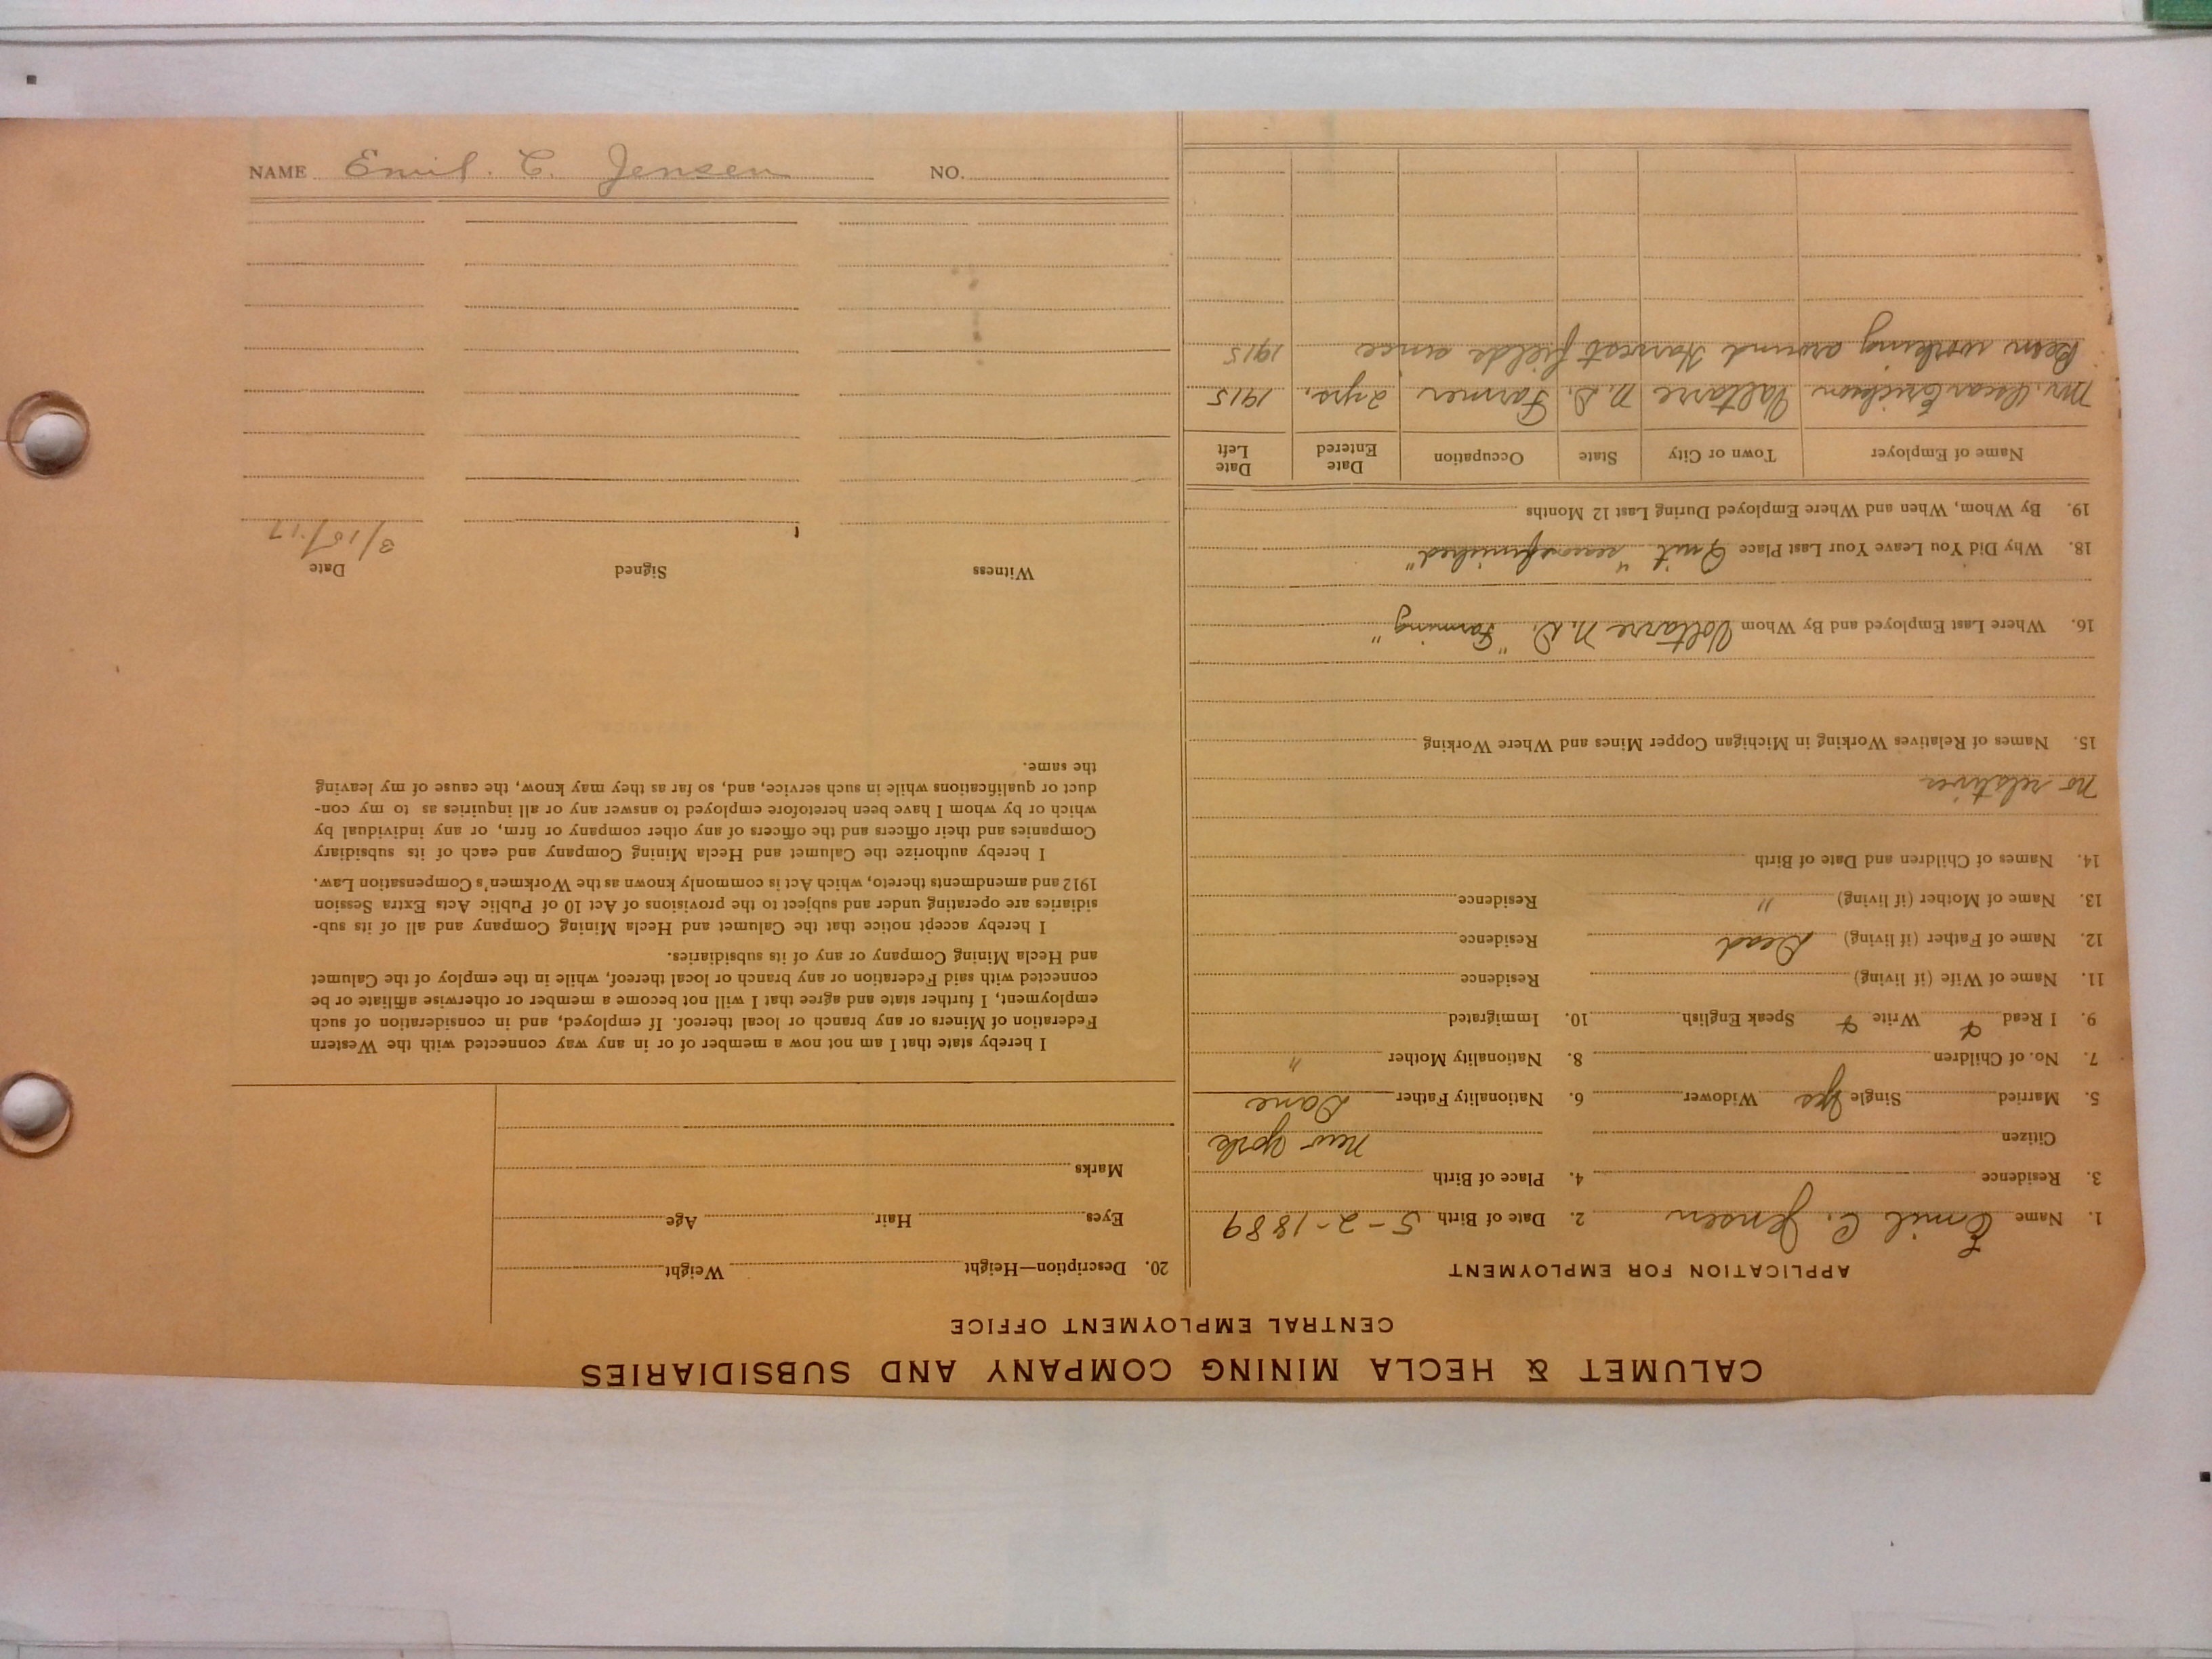 CALUMET & HECLA MINING COMPANY AND SUBSIDIARIES
CENTRAL EMPLOYMENT OFFICE
APPLICATION FOR EMPLOYMENT
1. Name Emil C. Jensen 2. Date of Birth 5-2-1889
3. Residence 4. Place of Birth
Citizen New York
5. Married Single Yes Widower 6. Nationality Father Dane
7. No. of Children 8. Nationality Mother "
9. I Read Write Speak English 10. Immigrated
11. Name of Wife (if living) Residence
12. Name of Father (if living) Dead Residence
13. Name of Mother (if living) " Residence
14. Names of Children and Date of Birth
no relatives
15. Names of Relatives Working in Michigan Copper Mines and Where Working
16. Where Last Employed and By Whom Voltarre N.D. "Farming"
18. Why Did You Leave Your Last Place Quit "season finished"
19. By Whom, When and Where Employed During Last 12 Months
Name of Employer Town or City State Occupation Date Entered Date Left
Mr. Oscar Erickson Valtarre N.D. Farmer 2 yrs. 1915
Been working around Harvest fields since 1915
20. Description—Height Weight
Eyes Hair Age
Marks
I hereby state that I am not now a member of or in any way connected with the Western
Federation of Miners or any branch or local thereof. If employed, and in consideration of such
employment, I further state and agree that I will not become a member or otherwise affiliate or be
connected with said Federation or any branch or local thereof, while in the employ of the Calumet
and Hecla Mining Company or any of its subsidiaries.
I hereby accept notice that the Calumet and Hecla Mining Company and all of its sub-
sidiaries are operating under and subject to the provisions of Act 10 of Public Acts Extra Session
1912 and amendments thereto, which Act is commonly known as the Workmen's Compensation Law.
I hereby authorize the Calumet and Hecla Mining Company and each of its subsidiary
Companies and their officers and the officers of any other company or firm, or any individual by
which or by whom I have been heretofore employed to answer any or all inquiries as to my con-
duct or qualifications while in such service, and, so far as they may know, the cause of my leaving
the same.
Witness Signed Date
3/10/17
NAME Emil. C. Jensen NO.